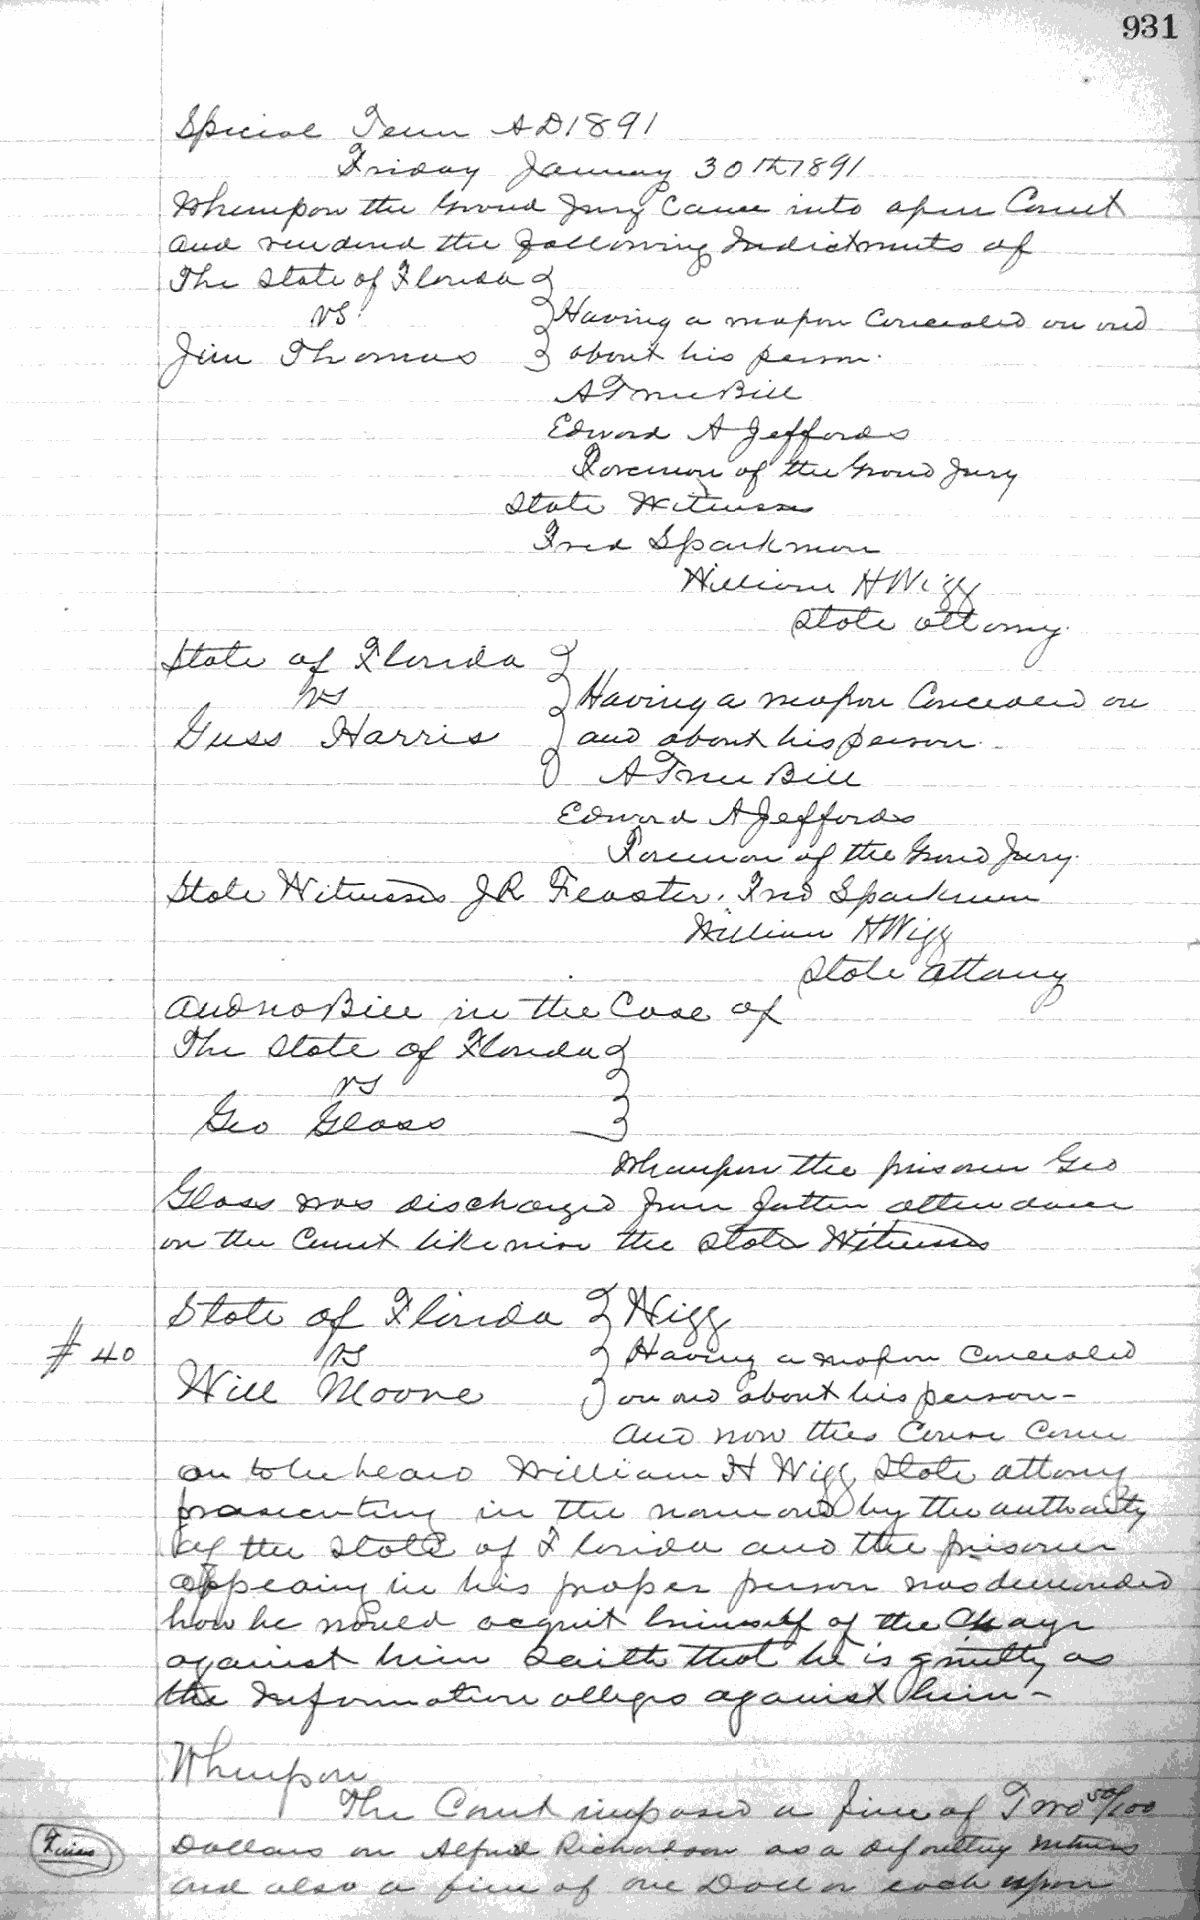 931
Special Term AD 1891
Friday January 30th 1891
Whereupon the Grand Jury Came into open Court
and rendered the following Indictments of
The State of Florida
vs.
Having a weapon Concealed on and
Jim Thomas
about his person.
A True Bill
Edward A Jeffords
Foreman of the Grand Jury
State Witness
Fred Sparkman
William H Wigg
State attorney.
State of Florida
vs
Having a weapon Concealed on
Guss Harris
and about his person.
A True Bill
Edward A Jeffords
Foreman of the Grand Jury.
State Witnesses J R Feaster. Fred Sparkman
William H Wigg
State attorney
And no Bill in the Case of
The State of Florida
vs
Geo Glass
Whereupon the prisoner Geo
Glass was discharged from further attendance
on the Court likewise the State Witnesses
State of Florida
Wigg
# 40
vs
Having a weapon Concealed
Will Moore
on and about his person -
And now this Cause Come
on to be heard William H Wigg State attorny
prosecuting in the name and by the authority
of the State of Florida and the prisoner
appearing in his proper person was demanded
how he would acquit himself of the Charge
against him Saith that he is guilty as
the Information alleges against him -
Whereupon
The Court imposed a fine of Two 50/100
Fines
Dollars on Alfred Richardson as a defaulting witness
and also a fine of one Dollar each upon